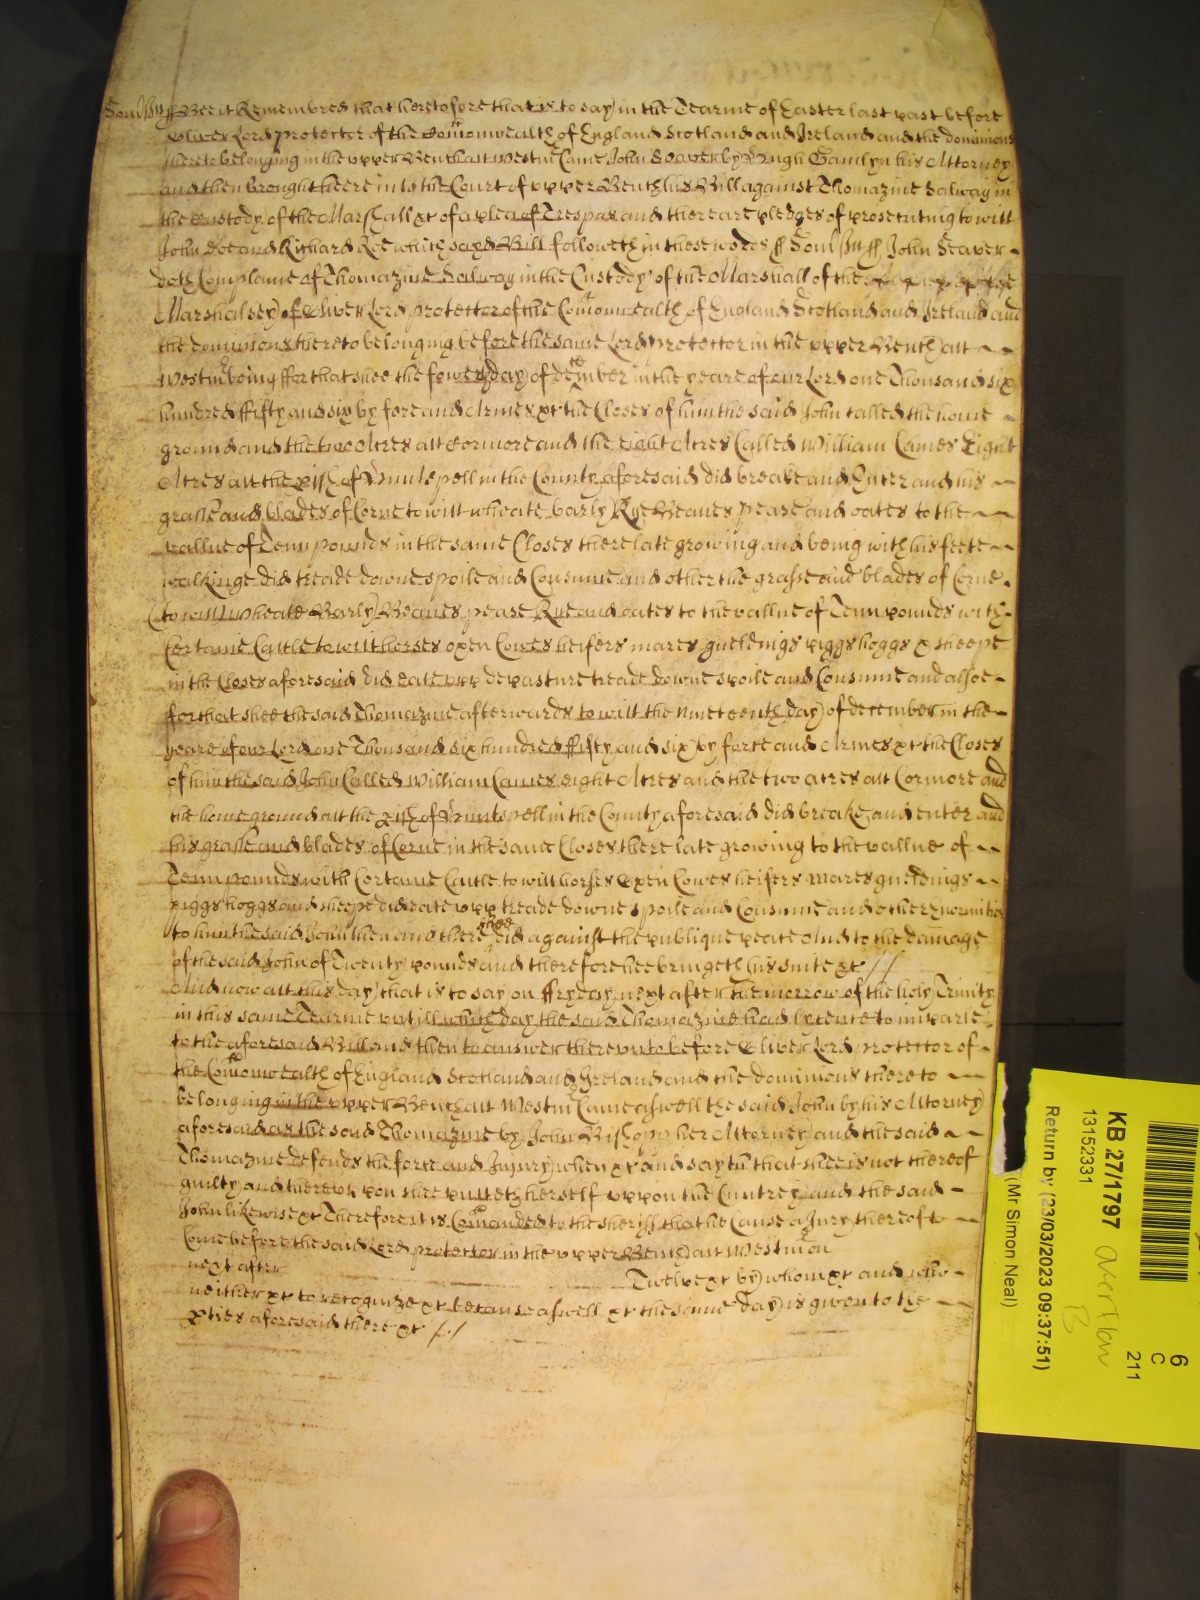 Som̃sett ff Bee it Remembred that heretofore that is to say in the Tearme of Easter last past before
Oliver Lord protector of the Com̃onwealth of England Scotland and Ireland and the dominions
thereto belonging in the upper Bench att Westm̃ Came John Seaver by Hugh Gamlyn his Attorney
and then brought heere into the Court of upper Bench his Bill against Thomazine Salway in
the Custody of the Marshall &c of a plea of Trespas and there are pledges of prosecuting to witt
John Doe and Richard Roe which said Bill followeth in these words ff Som̃sett ff John Seaver
doth Complaine of Thomazine Salway in the Custody of the Marshall of the
Marshalsey of Oliver Lord protector of the Com̃onwealth of England Scotland and Ireland and
the dominions thereto belonging before the same Lord Protector in the upper Bench att
Westm̃ being ffor that shee the day of december in the yeare of our Lord one Thousand six
hundred ffifty and six by force and Armes &c the Closes of him the said John called the home
ground and the two Acres att Cormore and the eight Acres Called William Cames Eight
Acres att the pish of Huntspell in the County aforesaid did breake and Enter and his
grasse and blades of Corne to witt wheate barly Rye Beanes pease and oates to the
vallue of Tenn pounds in the same Closes there late growing and being with his feete
walkinge did treade downe spoile and Consume and other the grasse and blades of Corne
(to witt) wheate Barly Beanes pease Rye and oates to the vallue of Tenn pounds with
Certaine Cattle to witt horses oxen Cowes heifers mares gueldings piggs hoggs & sheepe
in the Closes aforesaid did eate upp depasture treade downe spoile and Consume and alsoe
for that shee the said Thomazine afterwards to witt the nineteenth day of december in the
yeare of our Lord one Thousand six hundred ffifty and six by force and Armes &c the Closes
of him the said John Called William Cames eight Acres and the two acres att Cormore and
the home ground att the pish of Huntspell in the County aforesaid did breake and enter and
his grasse and blades of Corne in the same Closes there late growing to the vallue of
Tenn pounds with Certaine Cattle to witt horses Oxen Cowes heifers mares gueldings
piggs hoggs and sheepe did eate upp treade downe spoile and Consume and other enormities
to him the said John then and there shee did against the publique peace And to the damage
of the said John of Twenty pounds and therefore hee bringeth his suite &c //
And now att this day that is to say on ffryday next after the morrow of the holy Trinity
in this same Tearme untill which day the said Thomazine had lycence to imparle
to the aforesaid Bill and then to answer thereunto before Oliver Lord protector of
the Com̃onwealth of England Scotland and Ireland and the dominions there to
belonging in the upper Bench att Westm̃ Came aswell the said John by his Attorney
aforesaid as the said Thomazine by John Bishopp her Attorney and the said
Thomazine defends the force and Injury when &c and sayth that shee is not thereof
guilty and thereupon shee putteth herself uppon the Cuntrey and the said
John likewise &c Therefore it is Com̃anded to the sheriff that he Cause a Jury thereof to
Come before the said Lord protector in the upper Bench att Westm̃ on
next after Twelve &c by whom &c and who
neither &c to recognize &c because aswell &c the same day is given to the
pties aforesaid there &c //
KB 27/1797
13152331
Return by (23/03/2023 09:37:51)
(Mr Simon Neal)
overflow
B
6
C
211